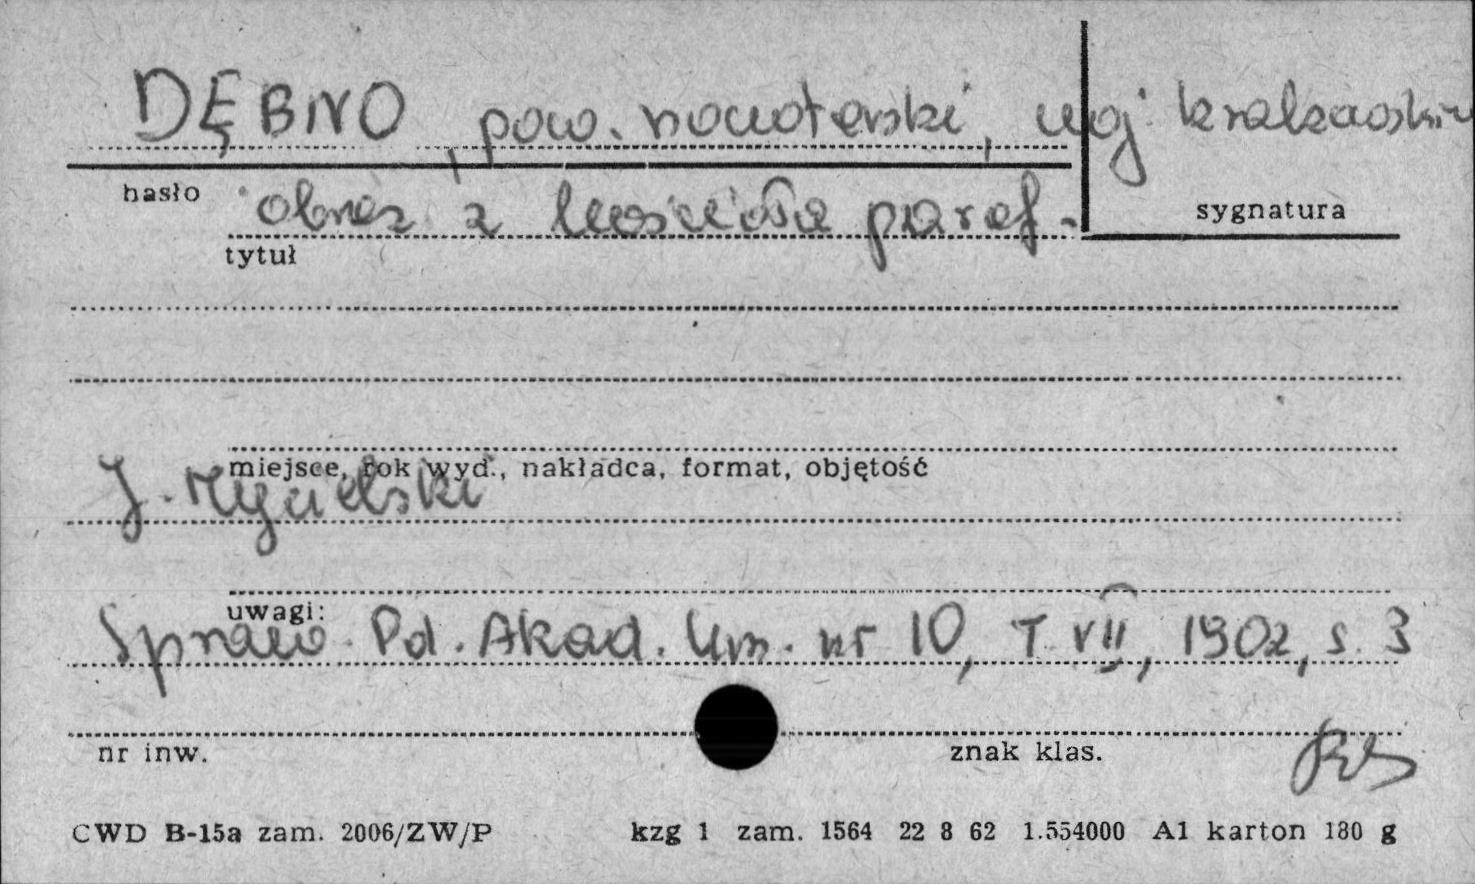 DĘBNO, pow. nowotarski, woj. krakowskie
hasło
sygnatura
obraz z kościoła paraf.
tytuł
miejsce, rok wyd., nakładca, format, objętość
J. Mycielski
uwagi:
Spraw. Pd. Akad. Um. nr 10, T. VII, 1902, s. 3
nr inw.
znak klas.
CWD B-15a zam. 2006/ZW/P kzg 1 zam. 1564 22 8 62 1.554000 A1 karton 180 g